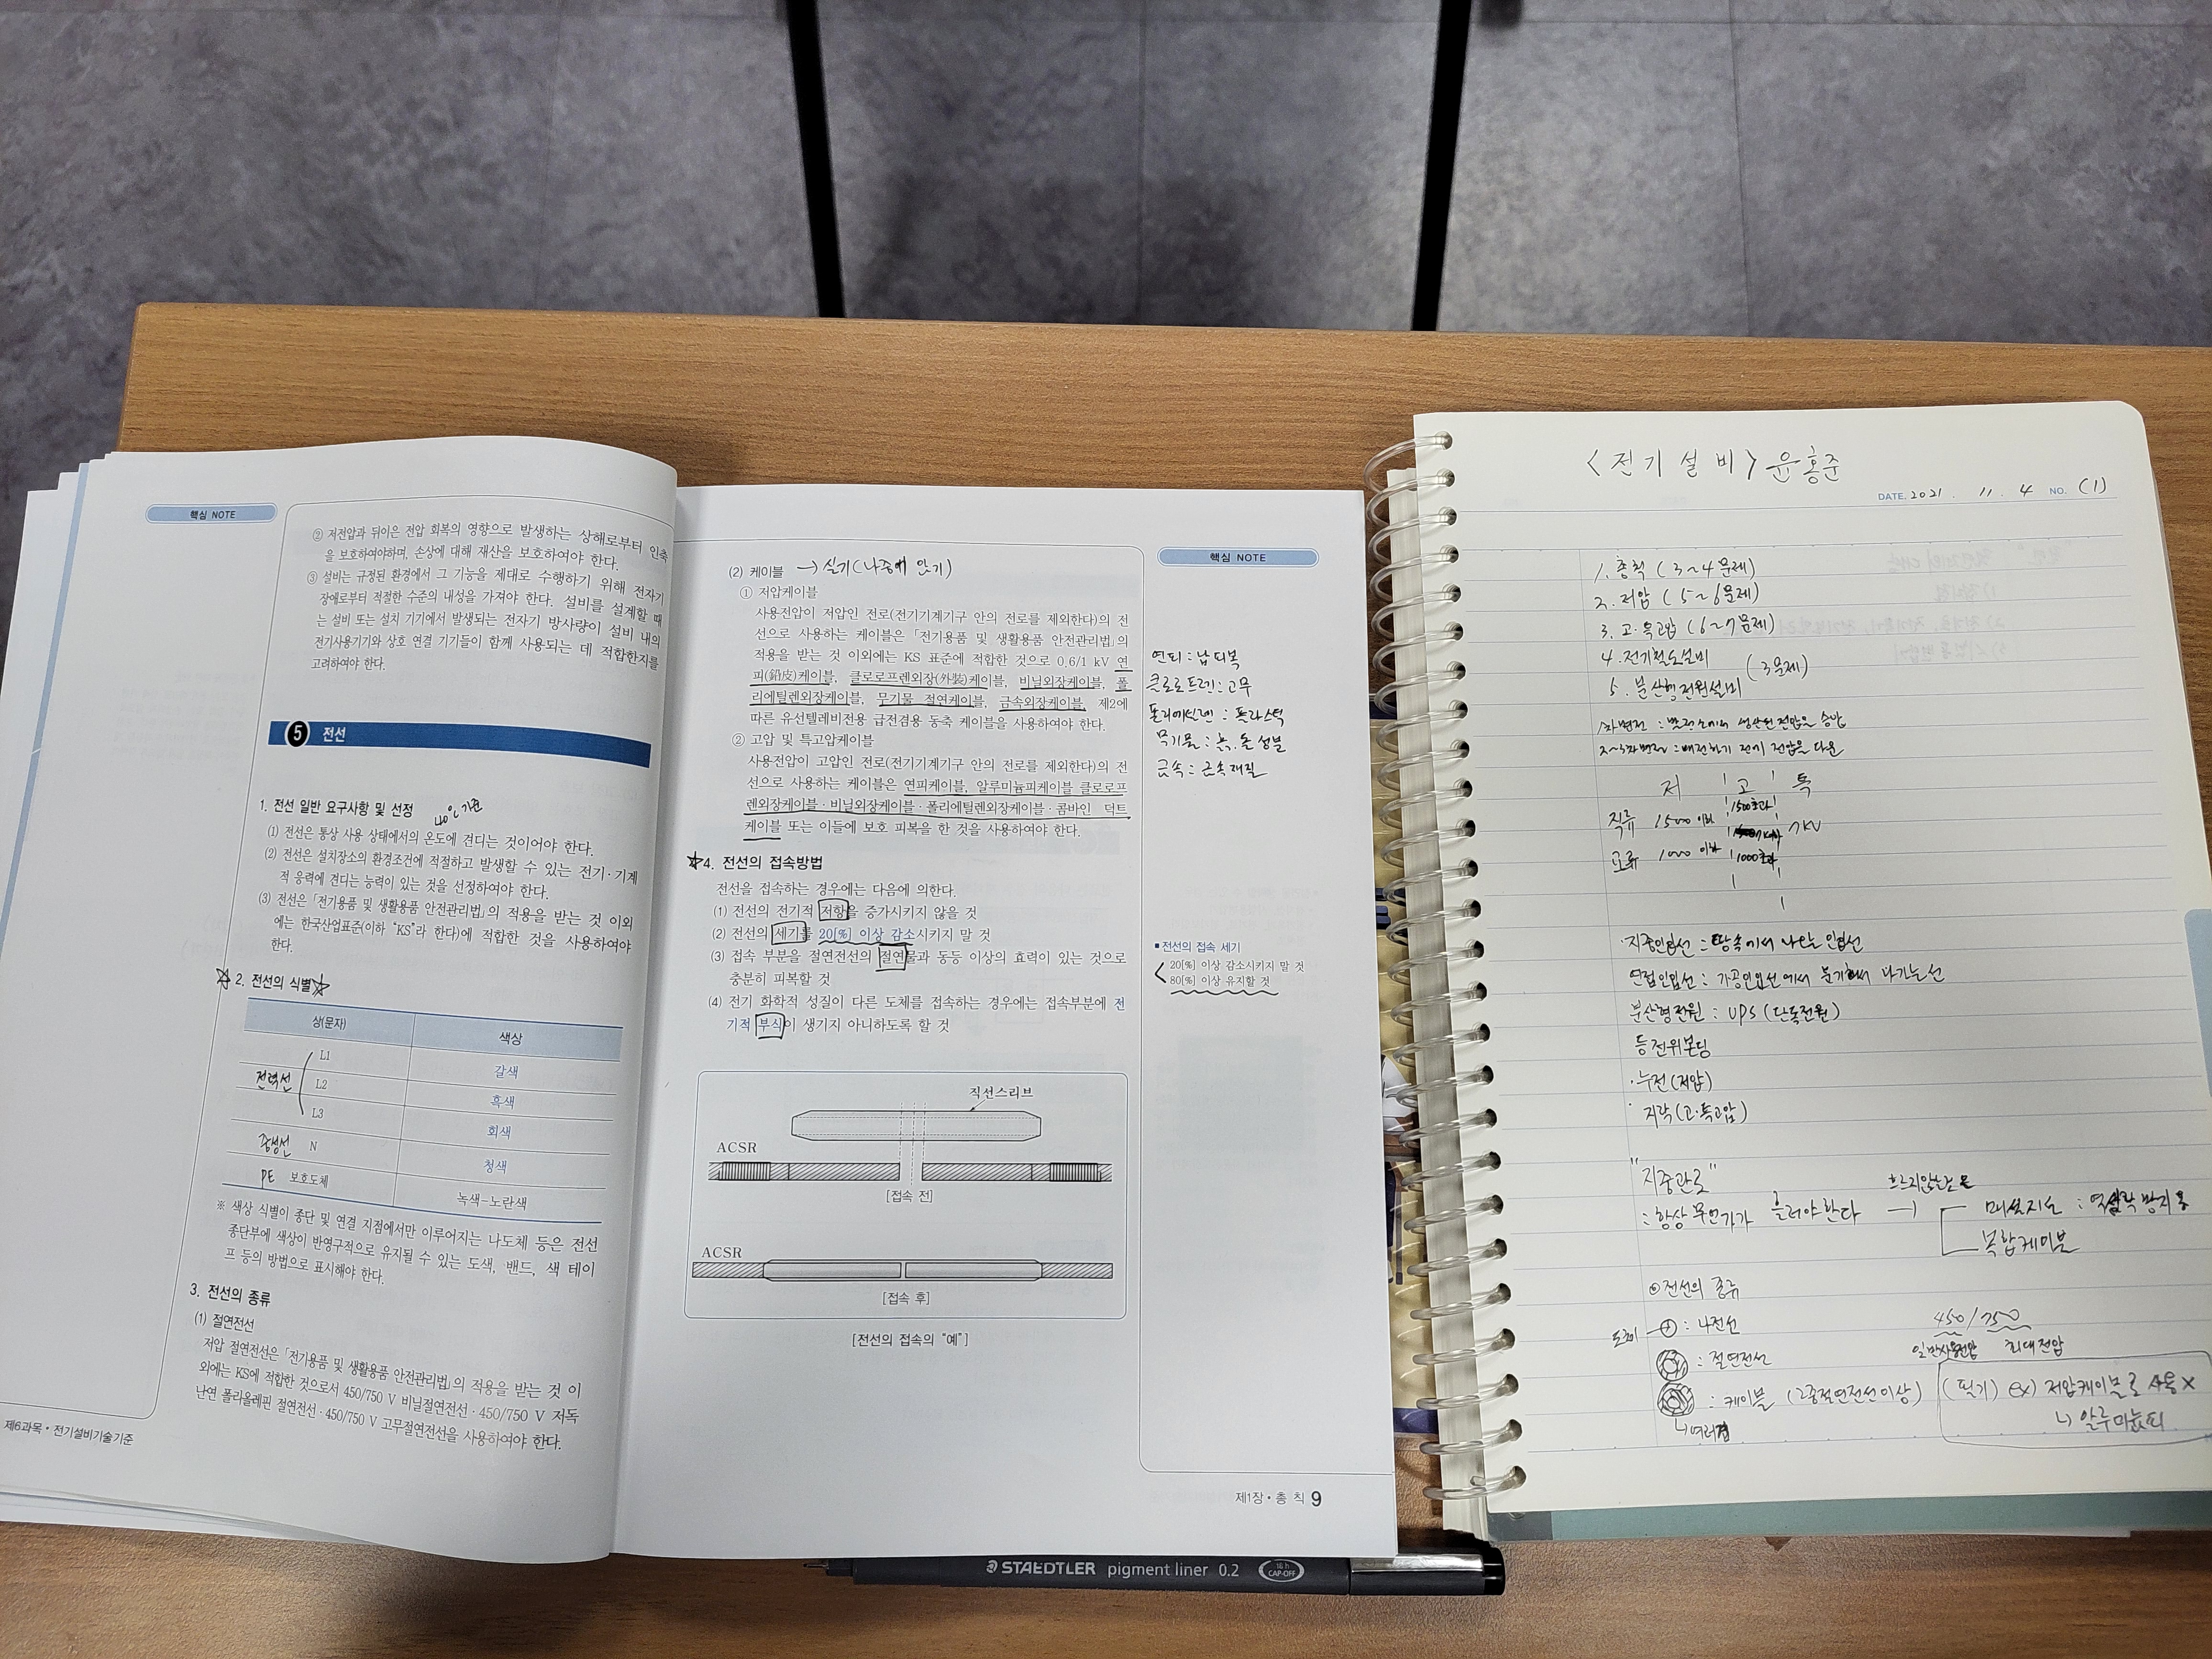 핵심 NOTE
② 저전압과 뒤이은 전압 회복의 영향으로 발생하는 상해로부터 인축
을 보호하여야하며, 손상에 대해 재산을 보호하여야 한다.
③ 설비는 규정된 환경에서 그 기능을 제대로 수행하기 위해 전자기
장애로부터 적절한 수준의 내성을 가져야 한다. 설비를 설계할 때
는 설비 또는 설치 기기에서 발생되는 전자기 방사량이 설비 내의
전기사용기기와 상호 연결 기기들이 함께 사용되는 데 적합한지를
고려하여야 한다.
5 전선
1. 전선 일반 요구사항 및 선정
40℃ 기준
(1) 전선은 통상 사용 상태에서의 온도에 견디는 것이어야 한다.
(2) 전선은 설치장소의 환경조건에 적절하고 발생할 수 있는 전기·기계
적 응력에 견디는 능력이 있는 것을 선정하여야 한다.
(3) 전선은 「전기용품 및 생활용품 안전관리법」의 적용을 받는 것 이외
에는 한국산업표준(이하 “KS”라 한다)에 적합한 것을 사용하여야
한다.
☆ 2. 전선의 식별 ☆
상(문자) 색상
전력선 L1 갈색
L2 흑색
L3 회색
중성선 N 청색
PE 보호도체 녹색-노란색
※ 색상 식별이 종단 및 연결 지점에서만 이루어지는 나도체 등은 전선
종단부에 색상이 반영구적으로 유지될 수 있는 도색, 밴드, 색 테이
프 등의 방법으로 표시해야 한다.
3. 전선의 종류
(1) 절연전선
저압 절연전선은 「전기용품 및 생활용품 안전관리법」의 적용을 받는 것 이
외에는 KS에 적합한 것으로서 450/750 V 비닐절연전선·450/750 V 저독
난연 폴리올레핀 절연전선·450/750 V 고무절연전선을 사용하여야 한다.
제6과목·전기설비기술기준
핵심 NOTE
(2) 케이블 → 실기(나중에 암기)
① 저압케이블
사용전압이 저압인 전로(전기기계기구 안의 전로를 제외한다)의 전
선으로 사용하는 케이블은 「전기용품 및 생활용품 안전관리법」의
적용을 받는 것 이외에는 KS 표준에 적합한 것으로 0.6/1 kV 연
피(鉛皮)케이블, 클로로프렌외장(外裝)케이블, 비닐외장케이블, 폴
리에틸렌외장케이블, 무기물 절연케이블, 금속외장케이블, 제2에
따른 유선텔레비전용 급전겸용 동축 케이블을 사용하여야 한다.
② 고압 및 특고압케이블
사용전압이 고압인 전로(전기기계기구 안의 전로를 제외한다)의 전
선으로 사용하는 케이블은 연피케이블, 알루미늄피케이블 클로로프
렌외장케이블·비닐외장케이블·폴리에틸렌외장케이블·콤바인 덕트
케이블 또는 이들에 보호 피복을 한 것을 사용하여야 한다.
☆4. 전선의 접속방법
전선을 접속하는 경우에는 다음에 의한다.
(1) 전선의 전기적 저항을 증가시키지 않을 것
(2) 전선의 세기를 20[%] 이상 감소시키지 말 것
(3) 접속 부분을 절연전선의 절연물과 동등 이상의 효력이 있는 것으로
충분히 피복할 것
(4) 전기 화학적 성질이 다른 도체를 접속하는 경우에는 접속부분에 전
기적 부식이 생기지 아니하도록 할 것
직선스리브
ACSR
[접속 전]
ACSR
[접속 후]
[전선의 접속의 “예”]
연피 : 납피복
클로로프렌 : 고무
폴리에틸렌 : 플라스틱
무기물 : 흙.돌 성분
금속 : 금속재질
■ 전선의 접속 세기
20[%] 이상 감소시키지 말 것
80[%] 이상 유지할 것
제1장·총 칙 9
STAEDTLER pigment liner 0.2
18 h
CAP-OFF
<전기설비> 윤홍준
DATE. 2021 . 11 . 4 NO. (1)
1. 총칙 (3~4문제)
2. 저압 (5~6문제)
3. 고·특고압 (6~7문제)
4. 전기철도설비
(3문제)
5. 분산형전원설비
1차변전 : 발전소에서 생산된 전압을 승압
2~3차변전 : 배전하기 전에 전압을 다운
저 고 특
직류 1500 이하 1500초과
7KV
교류 1000 이하 1000초과
·지중인입선 : 땅속에서 나오는 인입선
연접인입선 : 가공인입선에서 분기해서 나가는 선
분산형전원 : UPS (단독전원)
등전위본딩
·누전(저압)
·지락(고·특고압)
"지중관로"
: 항상 무언가가 흘러야한다 → 매설지선 : 역섬락 방지용
복합케이블
◎전선의 종류
도체 : 나전선
: 절연전선
: 케이블 (2중절연전선이상)
여러겹
450/750
일반사용전압 최대전압
(필기) ex) 저압케이블로 사용 X
↳ 알루미늄피